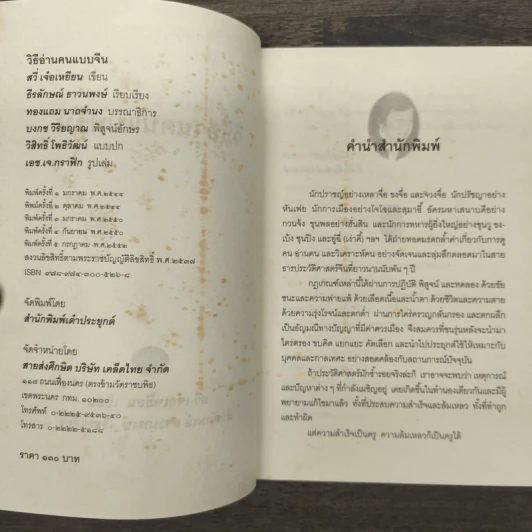 วิธีอ่านคนแบบจีน
สวี่ เจ๋อเหยียน เขียน
ธีรลักษณ์ ธาวนพงษ์ เรียบเรียง
ทองแถม นาถจำนง บรรณาธิการ
บงกช วิริยญาณ พิสูจน์อักษร
วิสิทธิ์ โพธิวัฒน์ แบบปก
เอช.เจ.กราฟิก รูปเล่ม
พิมพ์ครั้งที่ ๑ มกราคม พ.ศ.๒๕๔๔
พิมพ์ครั้งที่ ๒ ตุลาคม พ.ศ.๒๕๔๔
พิมพ์ครั้งที่ ๓ มกราคม พ.ศ.๒๕๕๐
พิมพ์ครั้งที่ ๔ กันยายน พ.ศ.๒๕๕๐
พิมพ์ครั้งที่ ๕ กรกฎาคม พ.ศ.๒๕๕๒
สงวนลิขสิทธิ์ตามพระราชบัญญัติลิขสิทธิ์ พ.ศ.๒๕๓๗
ISBN ๙๗๘-๙๗๔-๓๐๐-๕๒๖-๘
จัดพิมพ์โดย
สำนักพิมพ์เต๋าประยุกต์
จัดจำหน่ายโดย
สายส่งศึกษิต บริษัท เคล็ดไทย จำกัด
๑๑๘ ถนนเฟื่องนคร (ตรงข้ามวัดราชบพิธ)
เขตพระนคร กทม. ๑๐๒๐๐
โทรศัพท์ ๐-๒๒๒๕-๙๕๓๖-๔๐
โทรสาร ๐-๒๒๒๒-๕๑๘๘
ราคา ๑๓๐ บาท
คำนำสำนักพิมพ์
นักปราชญ์อย่างเหลาจื่อ ขงจื่อ และจวงจื่อ นักปรัชญาอย่าง
หันเฟย นักการเมืองอย่างโจโฉและสุมาอี้ อัครมหาเสนาบดีอย่าง
กวนจ้ง ขุนพลอย่างฮั่นสิน และนักการทหารผู้ยิ่งใหญ่อย่างซุนวู ขง-
เบ้ง ซุนปิง และอู๋ฉี่ ฯลฯ ได้ถ่ายทอดมรดกล้ำค่าเกี่ยวกับการดู
คน อ่านคน และวิเคราะห์คน อย่างจัดเจนและลุ่มลึกตลอดมาในสาย
ธารประวัติศาสตร์จีนที่ยาวนานนับพัน ๆ ปี
กฎเกณฑ์เหล่านี้ได้ผ่านการปฏิบัติ พิสูจน์ และทดลอง ด้วยชัย
ชนะและความพ่ายแพ้ ด้วยเลือดเนื้อและน้ำตา ด้วยชีวิตและความตาย
ด้วยความรุ่งโรจน์และตกต่ำ ผ่านการใคร่ครวญกลั่นกรอง และตกผลึก
เป็นอัญมณีทางปัญญาที่มีค่าควรเมือง จึงสมควรที่ชนรุ่นหลังจะนำมา
ไตร่ตรอง ขบคิด แยกแยะ คัดเลือก และนำไปประยุกต์ใช้ให้เหมาะกับ
บุคคลและกาลเทศะ อย่างสอดคล้องกับสถานการณ์ปัจจุบัน
ถ้าประวัติศาสตร์มักซ้ำรอยจริงล่ะก็ เราอาจจะพบว่า เหตุการณ์
และปัญหาต่าง ๆ ที่กำลังเผชิญอยู่ เคยเกิดขึ้นในทำนองเดียวกันและมีผู้
พยายามแก้ไขมาแล้ว ทั้งที่ประสบความสำเร็จและล้มเหลว ทั้งที่ทำถูก
และทำผิด
แต่ความสำเร็จเป็นครู ความล้มเหลวก็เป็นครูได้